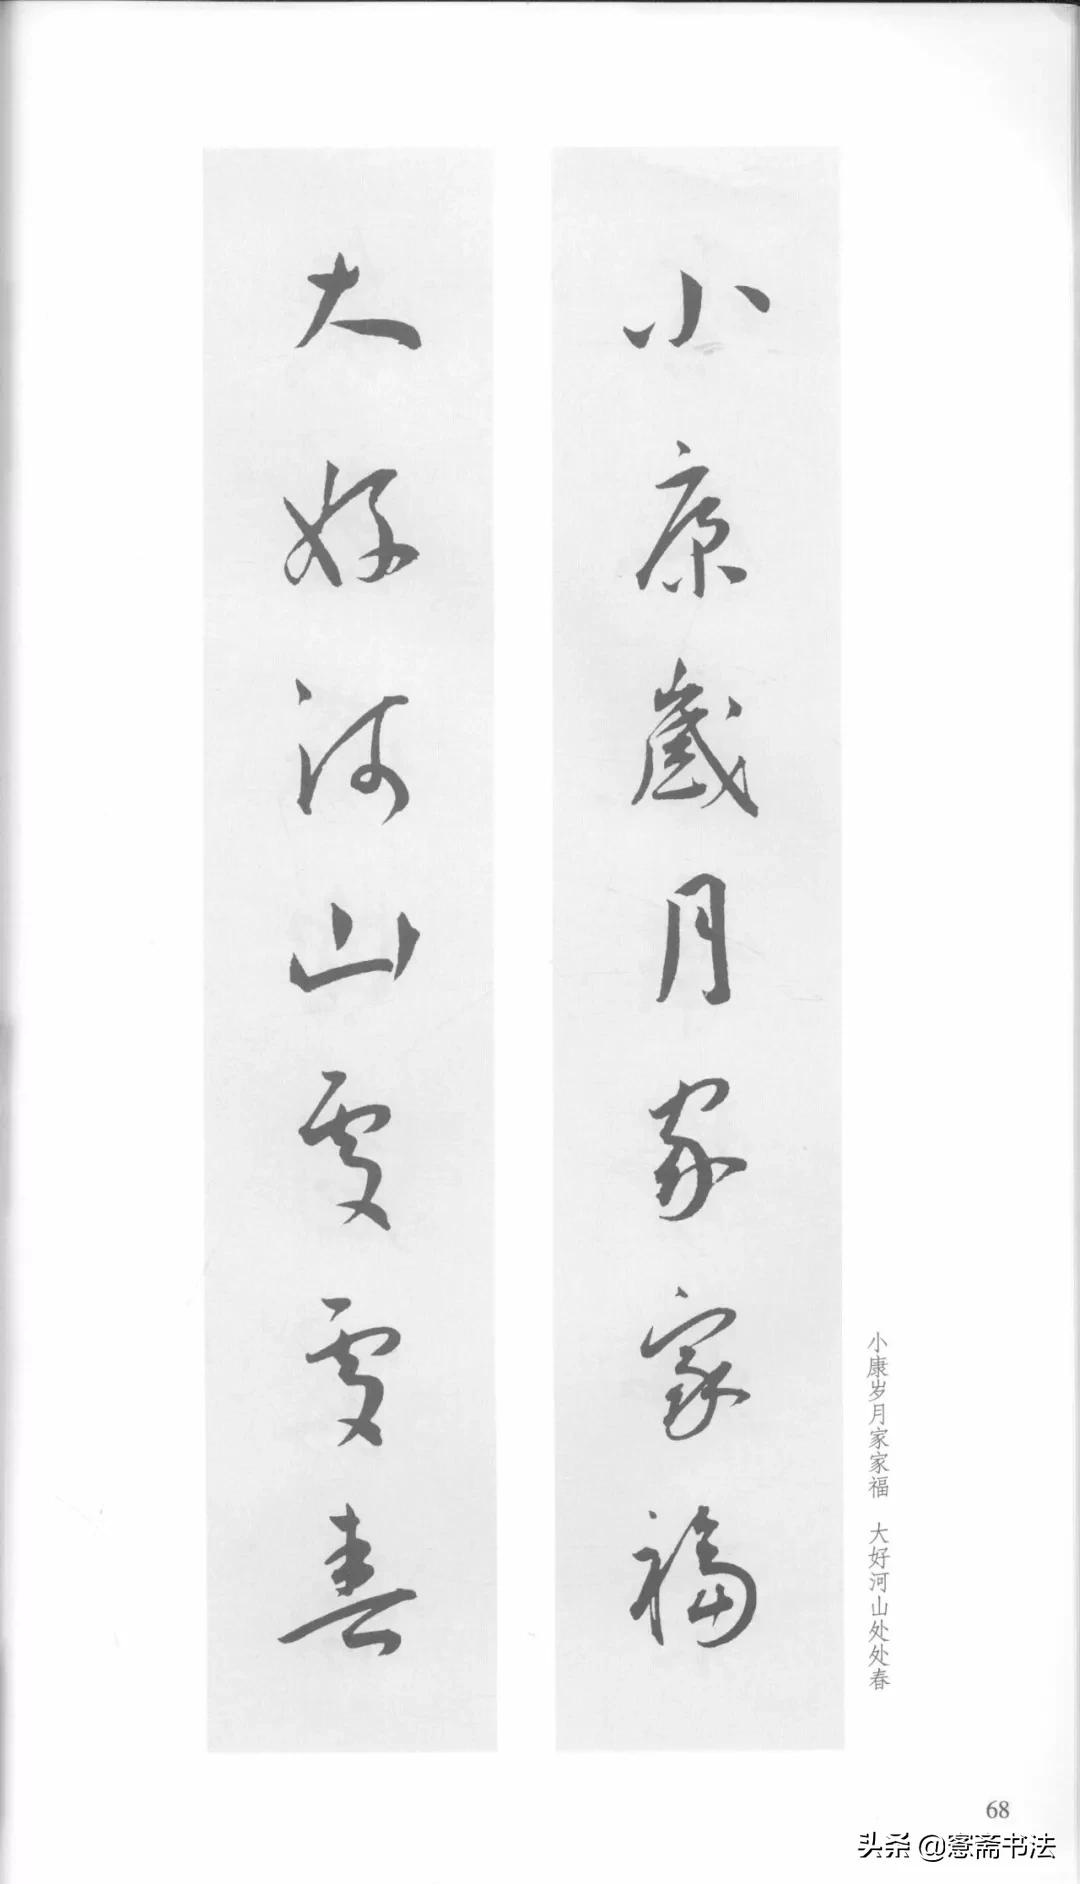 小康歲月家家福
大好河山處處春
小康岁月家家福 大好河山处处春
68
头条 @窓斋书法